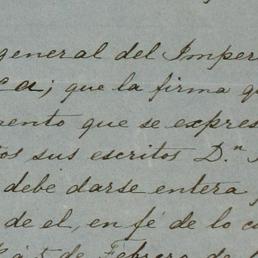 general del Imper
ca; que la firma q
mento que se expres
os sus escritos D.ⁿ
debe darse entera
de el, en fé de lo c
á 5 de Febrero de